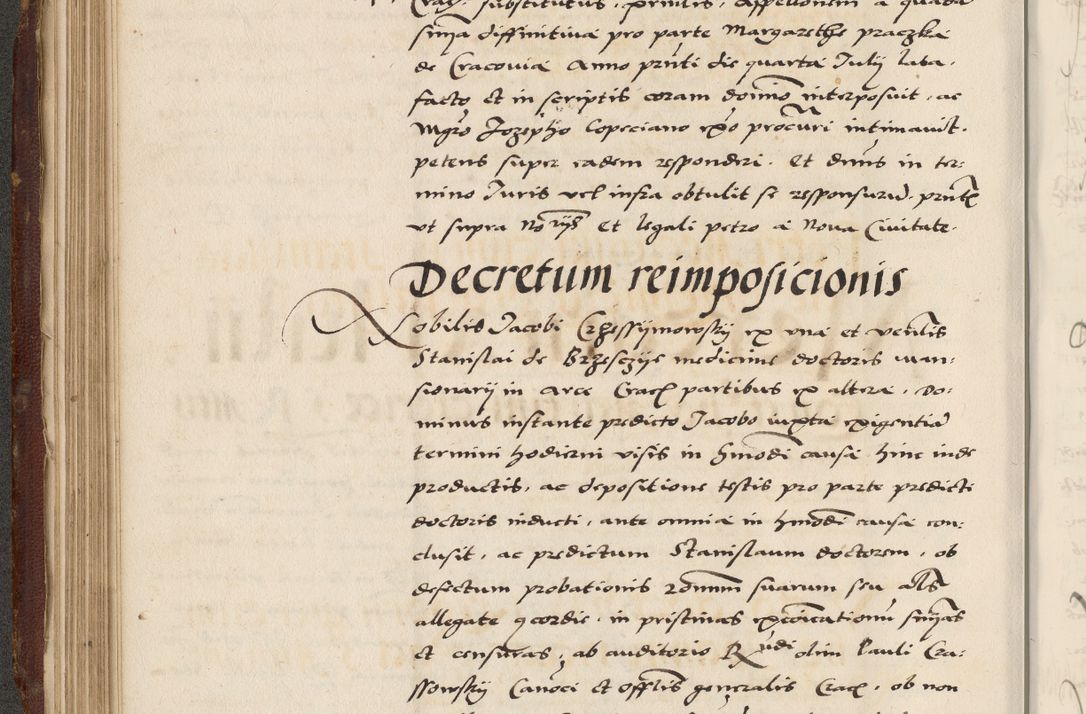 Crac. substitutus, presentis, appellationem a quadam
snia diffinitiua pro parte Margarethe praczka
de Cracouia Anno prnti die quarta Iulij lata,
facto et in scriptis coram domino interposuit, ac
Mgro Jozepho Copeciano exo procuri intimauit,
petens super eadem responderi. Et dnus in ter:
mino Iuris vel infra obtulit se responsurum, prnte
vt supra Norijs et legali petro a Noua Ciuitate.
Decretum reimposicionis
Nobilis Jacobi Crzessijmowskij ex vna et venlis
Stanislai de Brzesczije medicine doctoris man:
sionarij in Arce Crac partibus ex altera, Do:
minus instante predicto Jacobo iuxta exigentia
termini hodierni visis in hmodi causa hinc inde
productis, ac depositione testis pro parte predicti
doctoris inducti, ante omnia in hmodi causa con:
clusit, ac predictum Stanislaum doctorem, ob
defectum probationis suarum seu als
allegate 9cordie, in pristinas excoicationu snias
et censuras, ab auditorio Rndi olim Pauli Cra:
ssowskij Canoci et offlis generalis Crac, ob non